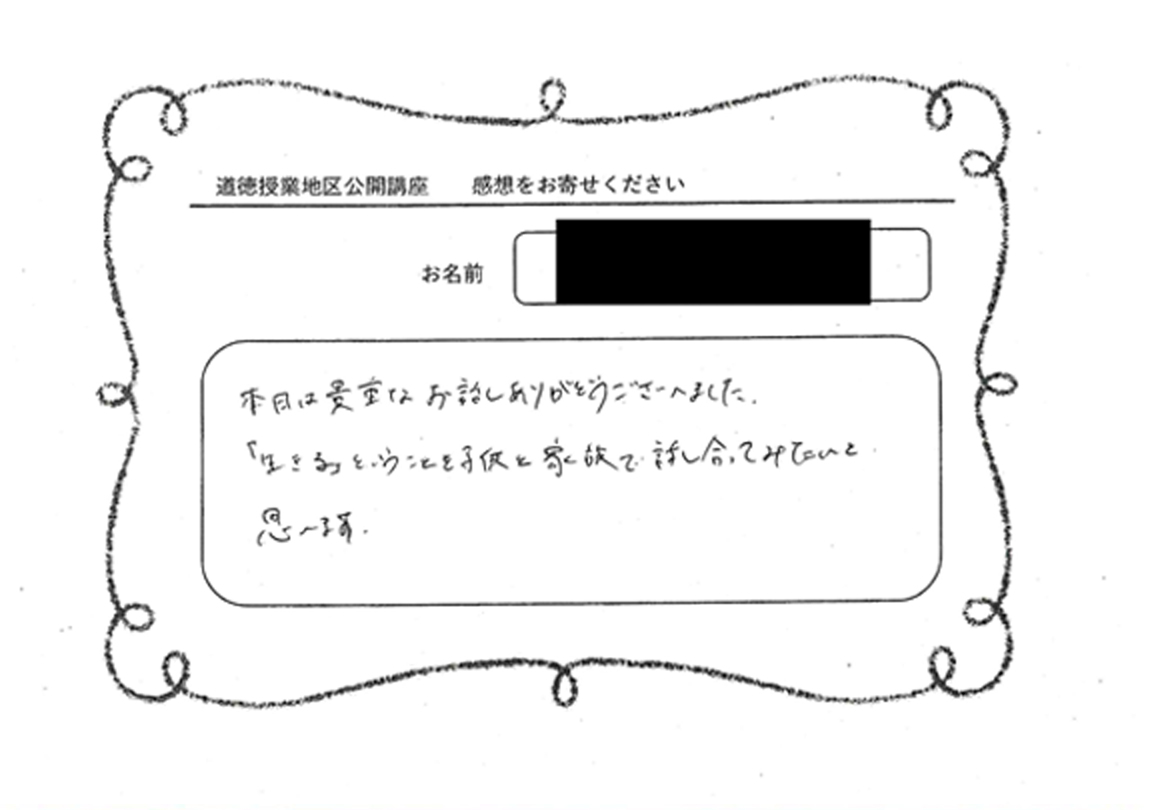 道徳授業地区公開講座　感想をお寄せください
お名前
本日は貴重なお話しありがとうございました。
「生きる」ということを子供と家族で話し合ってみたいと
思います。